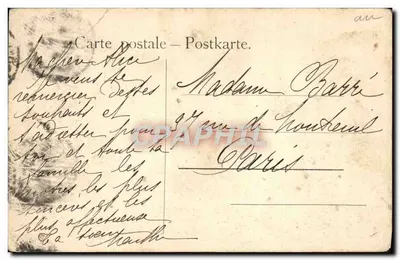 Carte postale – Postkarte.
Ma chère Alice
Je viens te
remercier de tes
souhaits et
t'adresser pour
toi et toute ta
famille les
nôtres les plus
sincères et les
plus affectueux
Ta vieux
Marthe
Madame Barré
97 rue de Montreuil
Paris
CPAPHIL